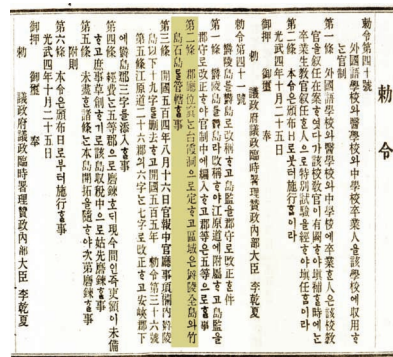 勅令
勅令第四十號
外國語學校와醫學校와中學校卒業人을該學校에收用하
는官制
第一條 外國語學校와醫學校와中學校에卒業한人은該校敎
官을敍任함事
第二條 本令은頒布日로봇터施行함이라
光武四年十月二十五日
御押 御璽 奉
勅 議政府議政臨時署理贊政內部大臣 李乾夏
勅令第四十一號
鬱陵島를鬱島로改稱하고島監을郡守로改正한件
第一條 鬱陵島를鬱島라改稱하야江原道에附屬하고島監을
郡守로改正하야官制中에編入하고郡等은五等으로할事
第二條 郡廳位置는台霞洞으로定하고區域은鬱陵全島와竹
島石島를管轄할事
第三條 開國五百四年八月十六日官報中官廳事項欄內鬱陵
島以下十九字를刪去하고開國五百五年勅令第三十六號
第五條江原道二十六郡의六字는七字로改正하고安峽郡下
에鬱島郡三字를添入할事
第四條 經費는五等郡으로磨鍊호되現今間인즉吏額이未備
하고庶事草創하기로該島收稅中으로姑先磨鍊할事
第五條 未盡한諸條는本島開拓을隨하야次第磨鍊할事
附則
第六條 本令은頒布日로부터施行할事
光武四年十月二十五日
御押 御璽 奉
勅 議政府議政臨時署理贊政內部大臣 李乾夏